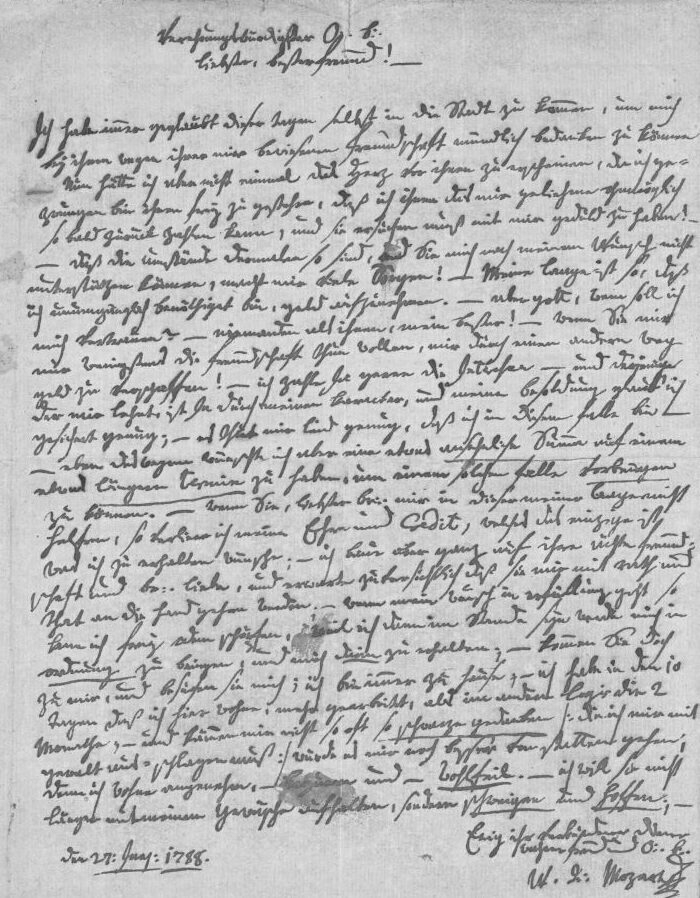 Verehrungswürdigster O. b:
liebster, bester freund! —
Ich habe immer geglaubt dieser tagen selbst in die Stadt zu kommen, um mich
bey ihnen wegen ihrer mir bewiesenen freundschaft mündlich bedanken zu können
— Nun hätte ich aber nicht einmal das Herz vor ihnen zu erscheinen, da ich ge-
zwungen bin ihnen frey zu gestehen, daß ich ihnen das mir geliehene ohnmöglich
so bald zurück zahlen kann, und sie ersuchen muß mit mir geduld zu haben! —
— daß die umstände dermalen so sind, und Sie mich nach meinem Wunsch nicht
unterstützen können, macht mir viele Sorgen! — Meine laage ist so, daß
ich unumgänglich benöthiget bin, geld aufzunehmen. — aber gott, wem soll ich
mich vertrauen? — niemanden als ihnen, mein bester! — wenn Sie mir
nur wenigstens die freundschaft thun wollen, mir durch einen andern weg
geld zu verschaffen! — ich zahle ja gerne die Interessen — und derjenige
der mir lehnt, ist ja durch meinen karacter, und meine besoldung glaub ich
gesichert genug; — es thut mir leid genug, daß ich in diesem falle bin —
— eben deswegen wünschte ich aber eine etwas ansehnliche Summa auf einen
etwas längern termin zu haben, um einem solchen falle vorbeugen
zu können. — wenn Sie, bester br: mir in dieser meiner laage nicht
helfen, so verliere ich meine Ehre und Credit, welches das einzige ist
was ich zu erhalten wünsche; — ich baue aber ganz auf ihre ächte freund-
schaft und br: liebe, und erwarte zuversichtlich daß sie mir mit rath und
that an die hand gehen werden. — wenn mein wunsch in erfüllung geht so
kann ich frey odem schöpfen, weil ich dann im Stande seyn werde mich in
ordnung zu bringen, und mich darin zu erhalten; — kommen Sie doch
zu mir, und besuchen sie mich; ich bin immer zu hause; — ich habe in den 10
tagen daß ich hier wohne, mehr gearbeitet, als im andern logis die 2
Monathe, — und kämen mir nicht so oft so schwarze gedanken |: die ich nur mit
gewalt aus-schlagen muß :| würde es mir noch besser von statten gehen;
denn ich wohne angenehm, — bequem und — wohlfeil. — ich will sie nicht
länger mit meinem gewäsche aufhalten, sondern schweigen und hoffen; —
Ewig ihr verbundner diener
wahrer freund und O: b:
den 27: Juny 1788.
W. A: Mozart